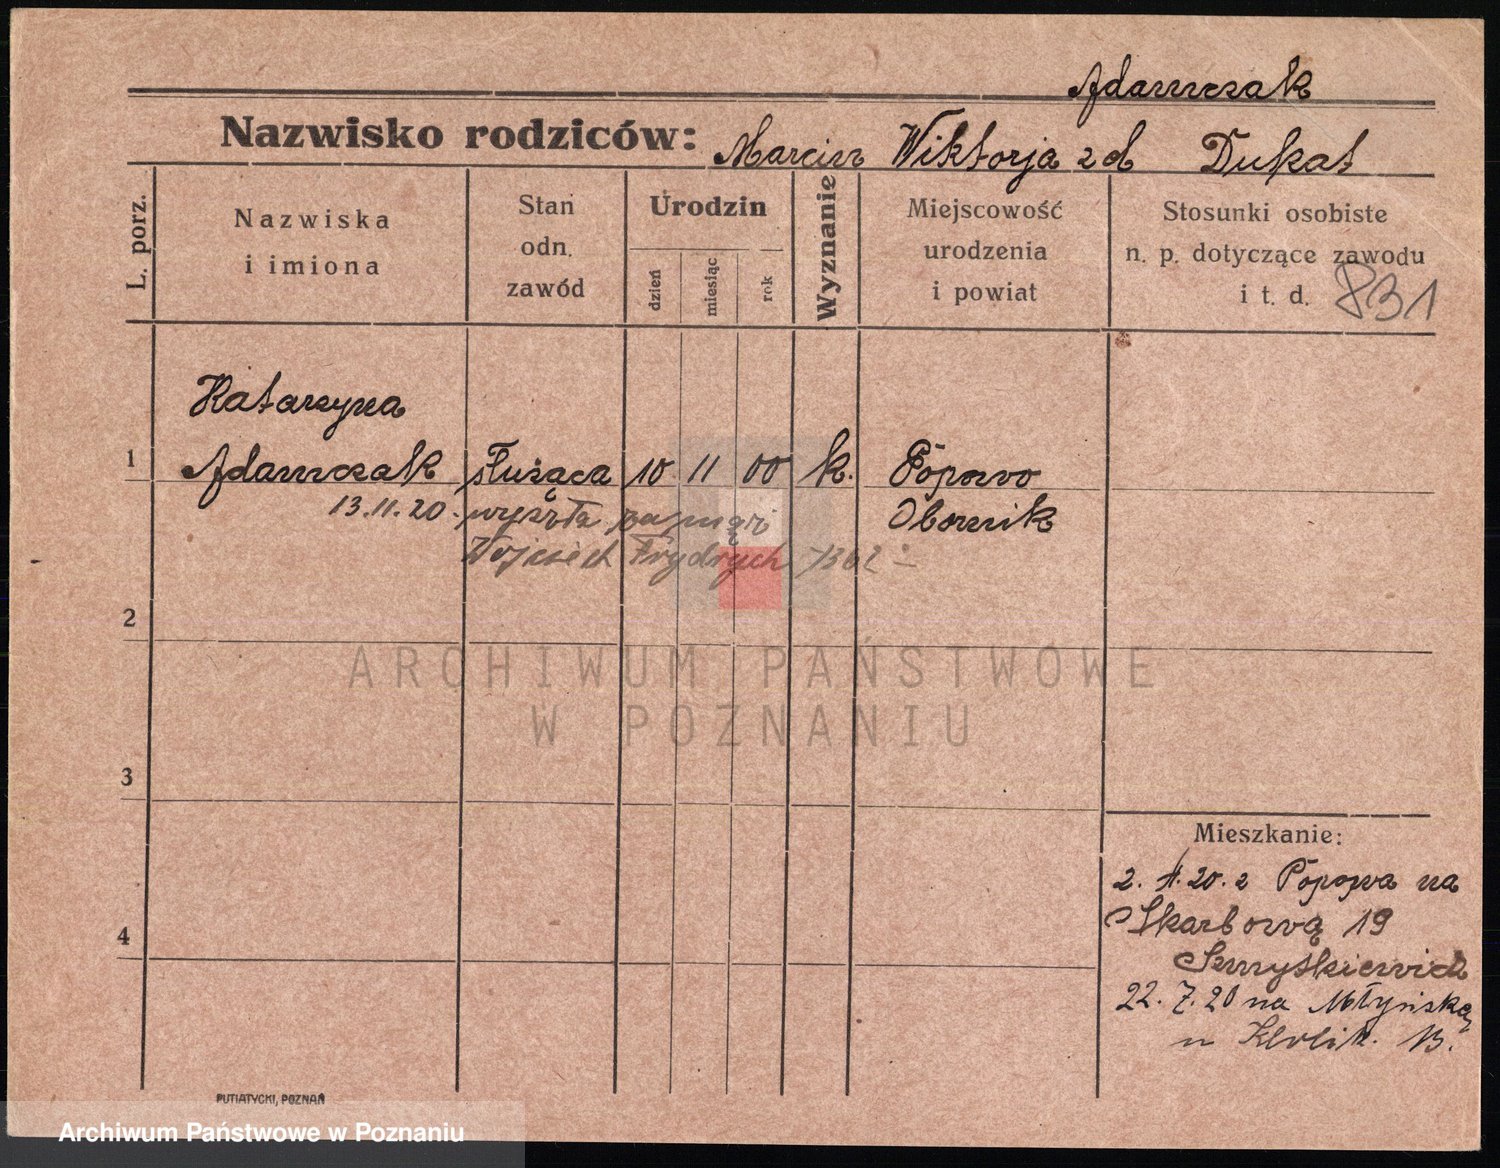 Adamczak
Nazwisko rodziców: Marcin Wiktorja zd Dukat
L. porz.
Nazwiska
i imiona
Stan
odn.
zawód
Urodzin
dzień
miesiąc
rok
Wyznanie
Miejscowość
urodzenia
i powiat
Stosunki osobiste
n. p. dotyczące zawodu
i t. d. 831
Katarzyna
1 Adamczak służąca 10 11 00 k. Popowo
13.11.20. wyszła zamąż Obornik
Wojciech Frydrych
2
ARCHIWUM PAŃSTWOWE
W POZNANIU
3
4
Mieszkanie:
2. 20. z Popowa na
Skarbową 19
22. 7. 20 na Młyńską
PUTIATYCKI, POZNAŃ
Archiwum Państwowe w Poznaniu